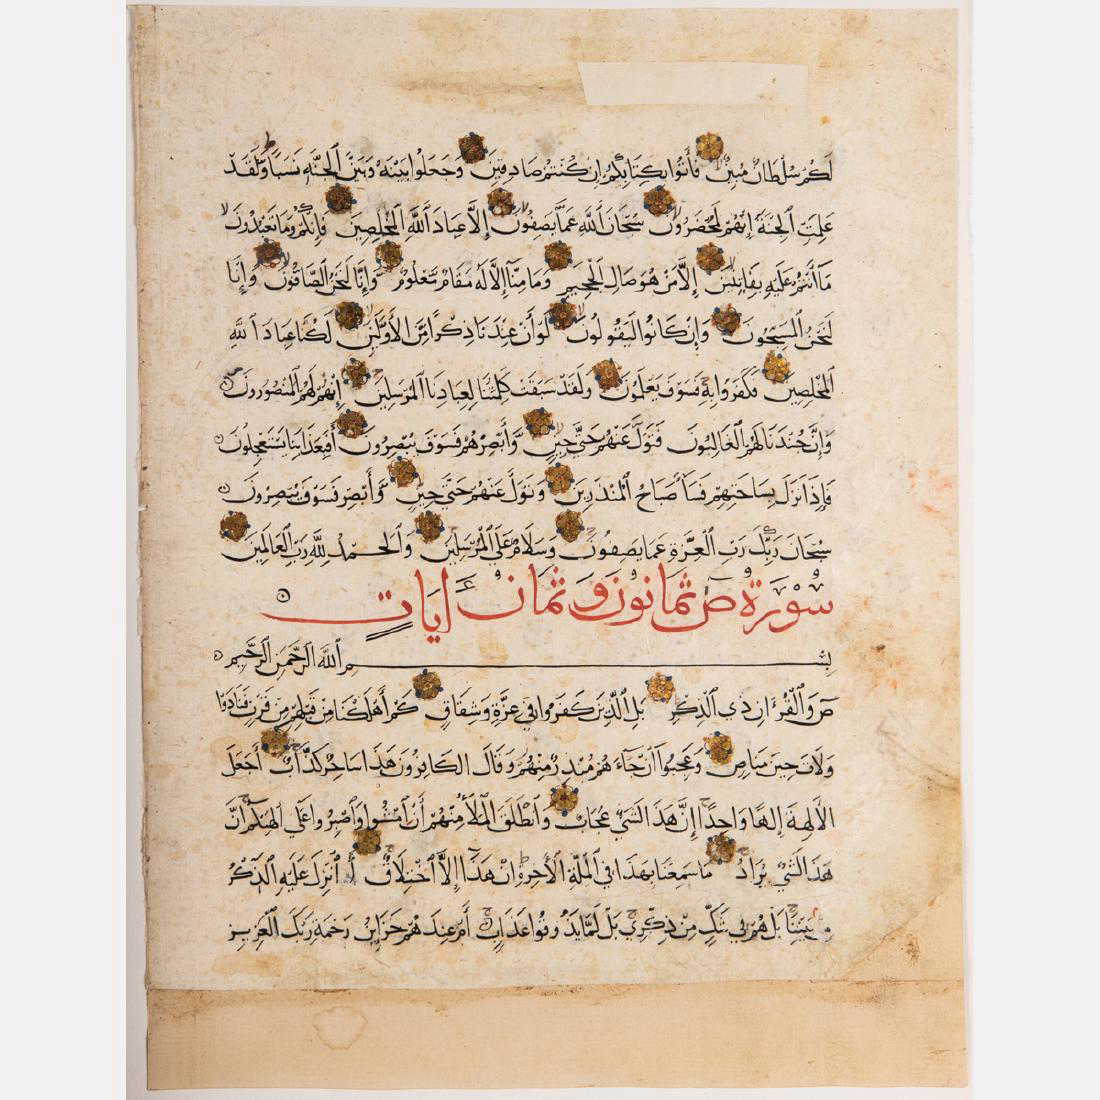 لَكُمْ سُلْطَانٌ مُبِينٌ فَأْتُوا بِكِتَابِكُمْ إِن كُنْتُمْ صَادِقِينَ وَجَعَلُوا بَيْنَهُ وَبَيْنَ الْجِنَّةِ نَسَبًا وَلَقَدْ
عَلِمَتِ الْجِنَّةُ إِنَّهُمْ لَمُحْضَرُونَ سُبْحَانَ اللَّهِ عَمَّا يَصِفُونَ إِلَّا عِبَادَ اللَّهِ الْمُخْلَصِينَ فَإِنَّكُمْ وَمَا تَعْبُدُونَ
مَا أَنْتُمْ عَلَيْهِ بِفَاتِنِينَ إِلَّا مَنْ هُوَ صَالِ الْجَحِيمِ وَمَا مِنَّا إِلَّا لَهُ مَقَامٌ مَعْلُومٌ وَإِنَّا لَنَحْنُ الصَّافُّونَ وَإِنَّا
لَنَحْنُ الْمُسَبِّحُونَ وَإِنْ كَانُوا لَيَقُولُونَ لَوْ أَنَّ عِنْدَنَا ذِكْرًا مِّنَ الْأَوَّلِينَ لَكُنَّا عِبَادَ اللَّهِ
الْمُخْلَصِينَ فَكَفَرُوا بِهِ فَسَوْفَ يَعْلَمُونَ وَلَقَدْ سَبَقَتْ كَلِمَتُنَا لِعِبَادِنَا الْمُرْسَلِينَ إِنَّهُمْ لَهُمُ الْمَنْصُورُونَ
وَإِنَّ جُنْدَنَا لَهُمُ الْغَالِبُونَ فَتَوَلَّ عَنْهُمْ حَتَّى حِينٍ وَأَبْصِرْهُمْ فَسَوْفَ يُبْصِرُونَ أَفَبِعَذَابِنَا يَسْتَعْجِلُونَ
فَإِذَا نَزَلَ بِسَاحَتِهِمْ فَسَاءَ صَبَاحُ الْمُنْذَرِينَ وَتَوَلَّ عَنْهُمْ حَتَّى حِينٍ وَأَبْصِرْ فَسَوْفَ يُبْصِرُونَ
سُبْحَانَ رَبِّكَ رَبِّ الْعِزَّةِ عَمَّا يَصِفُونَ وَسَلَامٌ عَلَى الْمُرْسَلِينَ وَالْحَمْدُ لِلَّهِ رَبِّ الْعَالَمِينَ
سورة ص ثمانون وثمان ايات
بِسْمِ اللَّهِ الرَّحْمَنِ الرَّحِيمِ
صَ وَالْقُرْآنِ ذِي الذِّكْرِ بَلِ الَّذِينَ كَفَرُوا فِي عِزَّةٍ وَشِقَاقٍ كَمْ أَهْلَكْنَا مِنْ قَبْلِهِمْ مِنْ قَرْنٍ فَنَادَوْا
وَلَاتَ حِينَ مَنَاصٍ وَعَجِبُوا أَنْ جَاءَهُمْ مُنْذِرٌ مِنْهُمْ وَقَالَ الْكَافِرُونَ هَذَا سَاحِرٌ كَذَّابٌ أَجَعَلَ
الْآلِهَةَ إِلَهًا وَاحِدًا إِنَّ هَذَا لَشَيْءٌ عُجَابٌ وَانْطَلَقَ الْمَلَأُ مِنْهُمْ أَنِ امْشُوا وَاصْبِرُوا عَلَى آلِهَتِكُمْ إِنَّ
هَذَا لَشَيْءٌ يُرَادُ مَا سَمِعْنَا بِهَذَا فِي الْمِلَّةِ الْآخِرَةِ إِنْ هَذَا إِلَّا اخْتِلَاقٌ أَأُنْزِلَ عَلَيْهِ الذِّكْرُ
مِنْ بَيْنِنَا بَلْ هُمْ فِي شَكٍّ مِنْ ذِكْرِي بَلْ لَمَّا يَذُوقُوا عَذَابِ أَمْ عِنْدَهُمْ خَزَائِنُ رَحْمَةِ رَبِّكَ الْعَزِيزِ